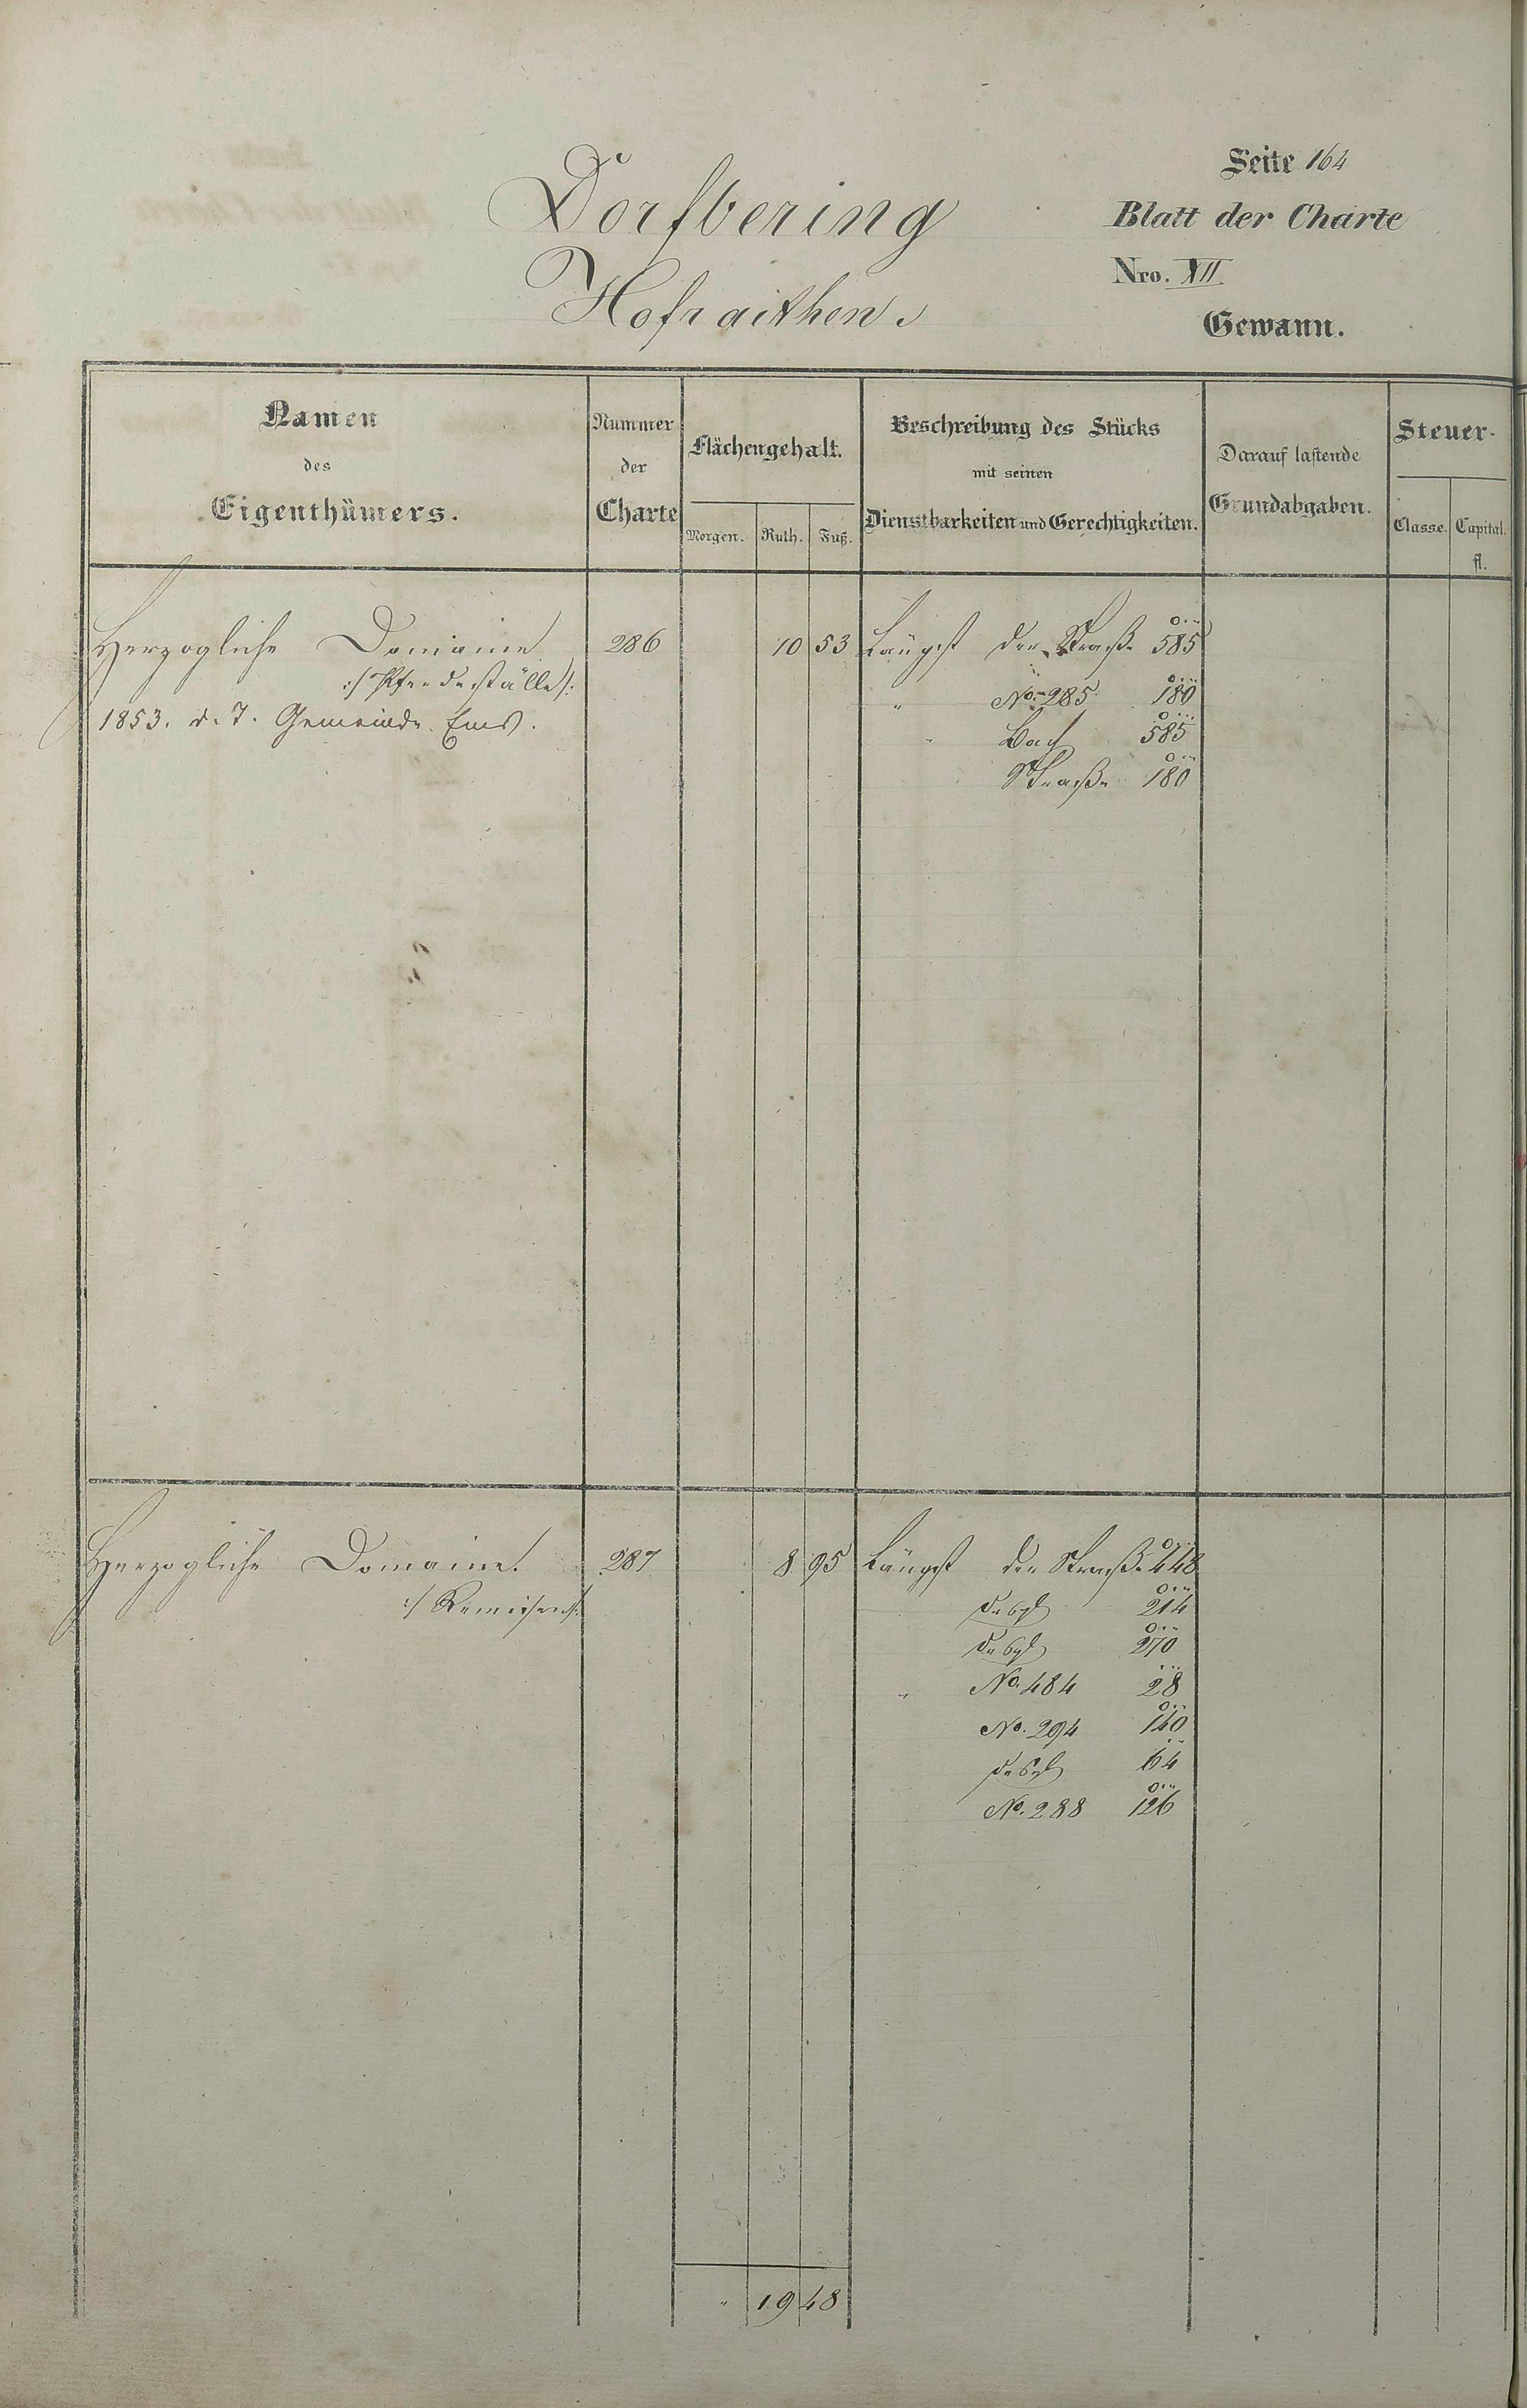 Seite 164
Dorfbering
Blatt der Charte
Nro. XII
Hofraithen.
Gewann.
Namen des Eigenthümers.
Nummer der Charte
Flächengehalt.
Morgen. Ruth. Fuß.
Beschreibung des Stücks mit seinen Dienstbarkeiten und Gerechtigkeiten.
Darauf lastende Grundabgaben.
Steuer-
Classe. Capital. fl.
Herzogliche Domaine 286 10 53 Längst der Straße 585
:/ Pferdeställe /: " No. 285 180
1853. d. T. Gemeinde Ems. " Bach 585
Straße 180
Herzogliche Domaine. 287 8 95 Längst der Straße 448
:/ Remisen /: desgl 214
desgl 270
" No. 484 28
No. 294 140
desgl 64
No. 288 126
" 19 48